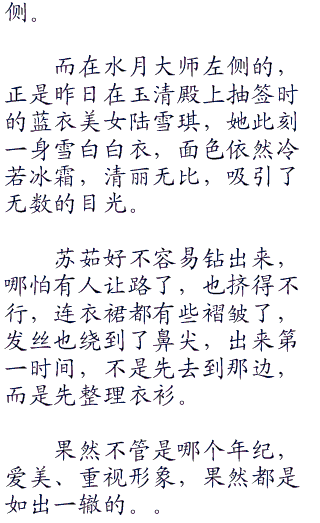 侧。
而在水月大师左侧的，
正是昨日在玉清殿上抽签时
的蓝衣美女陆雪琪，她此刻
一身雪白白衣，面色依然冷
若冰霜，清丽无比，吸引了
无数的目光。
苏茹好不容易钻出来，
哪怕有人让路了，也挤得不
行，连衣裙都有些褶皱了，
发丝也绕到了鼻尖，出来第
一时间，不是先去到那边，
而是先整理衣衫。
果然不管是哪个年纪，
爱美、重视形象，果然都是
如出一辙的。。